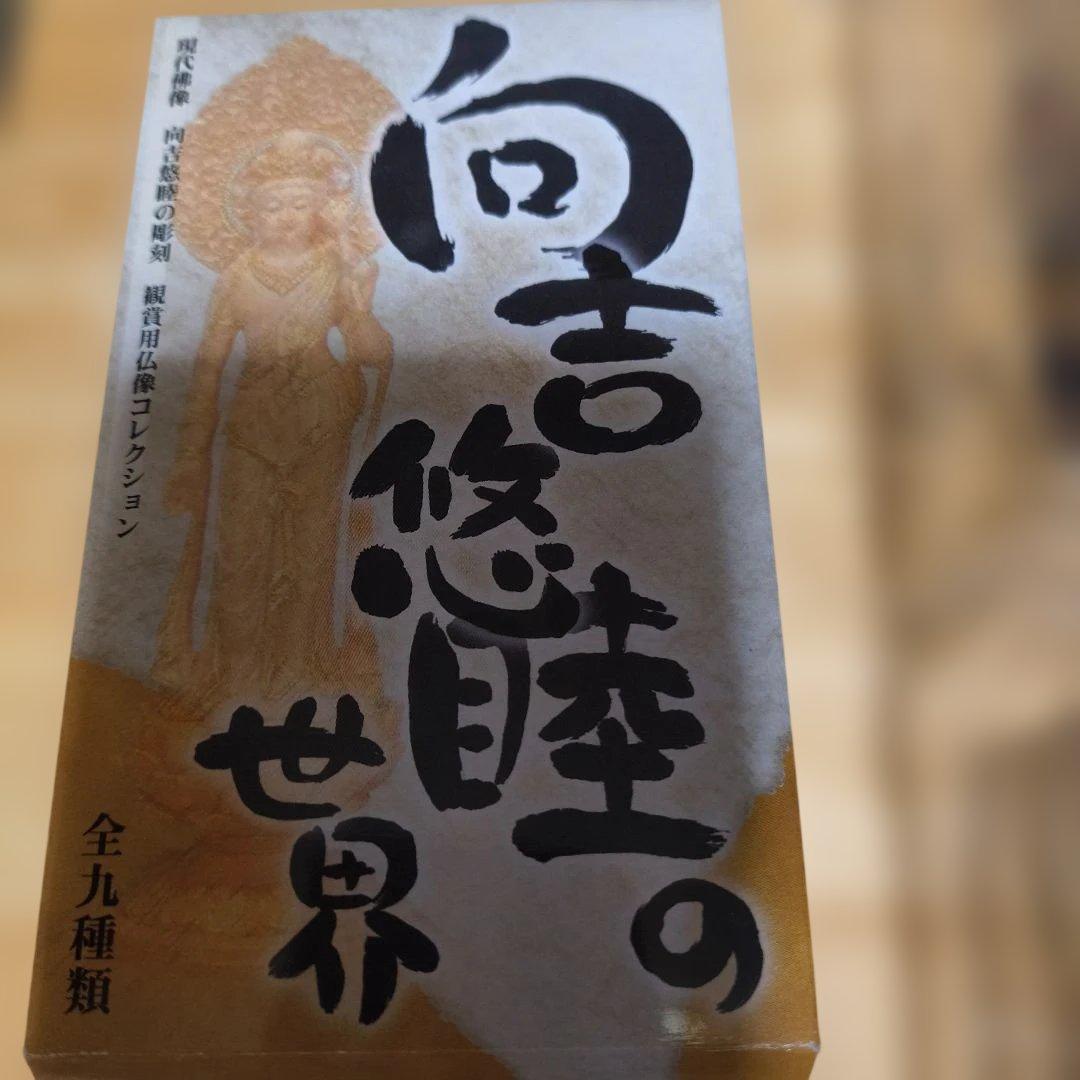 向吉悠睦の
世界
現代佛像 向吉悠睦の彫刻 観賞用仏像コレクション
全九種類